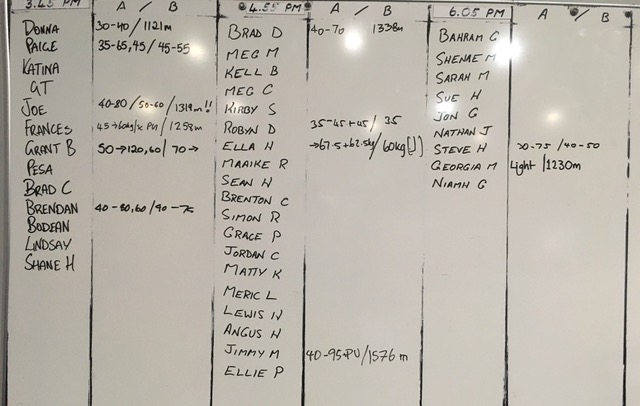 3.45 PM A / B
DONNA 30-40 / 1121m
PAIGE 35-65,45 / 45-55
KATINA
GT
JOE 40-80 / 50-60 / 1319m!!
FRANCES 45→60kg/x PU / 1258m
GRANT B 50→120,60 / 70→
PESA
BRAD C
BRENDAN 40-80,60 / 90-75
BODEAN
LINDSAY
SHANE H
4.55 PM A / B
BRAD D 40-70 1338m
MEG M
KELL B
MEG C
KIRBY S
ROBYN D 35-45+45 / 35
ELLA H →67.5+62.5kg / 60kg
MAAIKE R
SEAN H
BRENTON C
SIMON R
GRACE P
JORDAN C
MATTY K
MERIC L
LEWIS H
ANGUS H
JIMMY M 40-95+PU / 1576m
ELLIE P
6.05 PM A / B
BAHRAM G
SHENAE M
SARAH M
SUE H
JON G
NATHAN J
STEVE H 20-75 / 40-50
GEORGIA M light / 1230m
NIAMH G